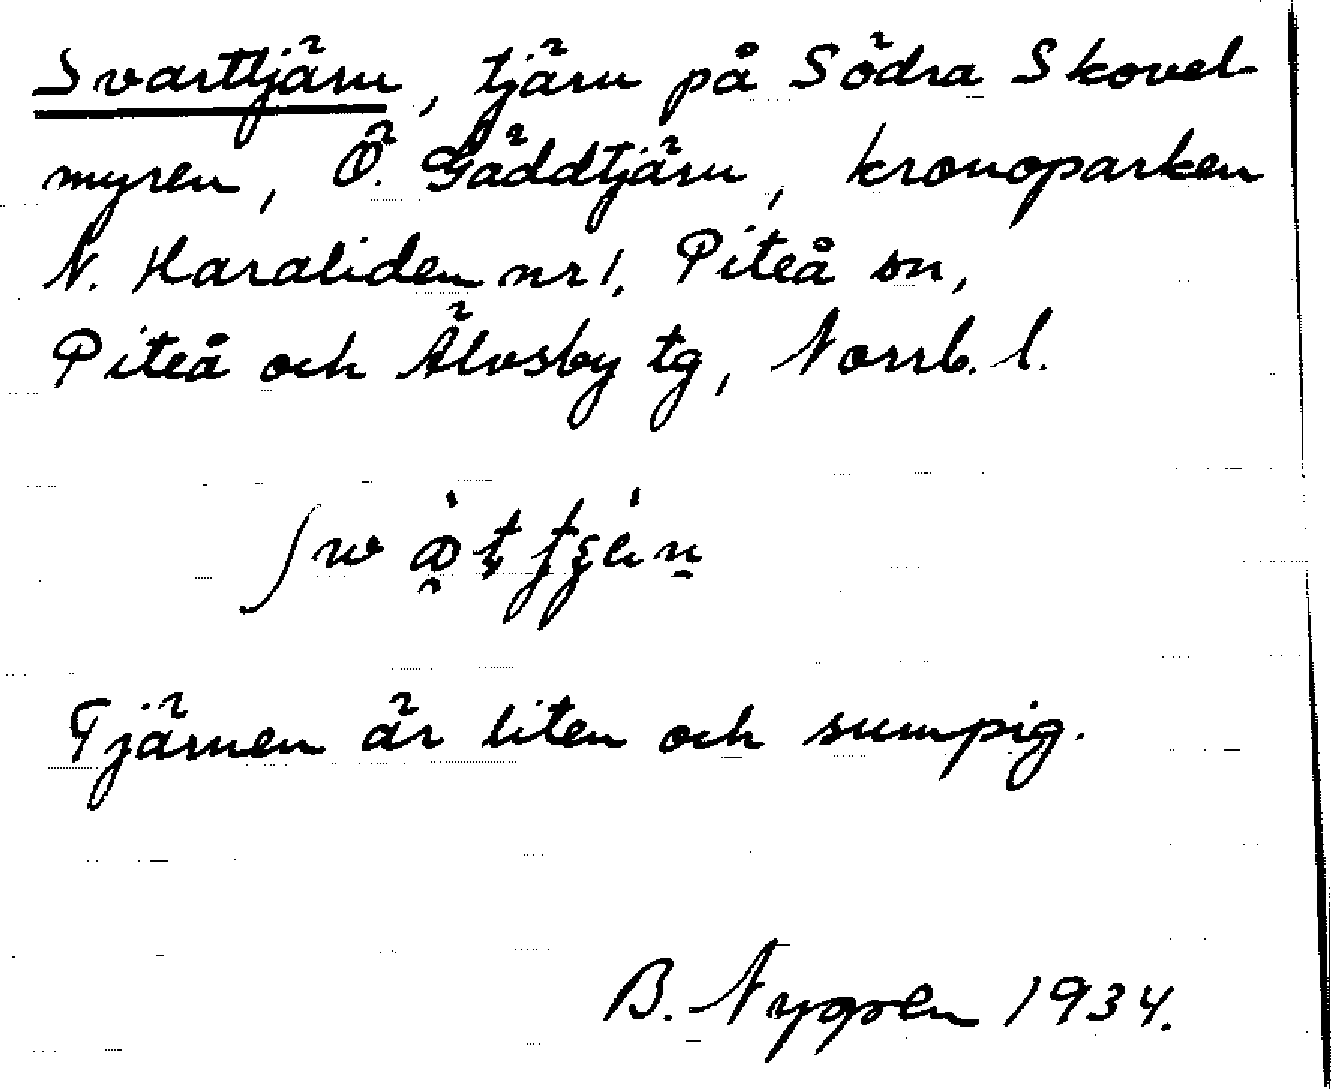 Svarttjärn, tjärn på Södra Skovel-
myren, Ö. Gäddtjärn, kronoparken
N. Haraliden nr 1, Piteå sn,
Piteå och Älvsby tg, Norrb. l.
Tjärnen är liten och sumpig.
B. Nygren 1934.